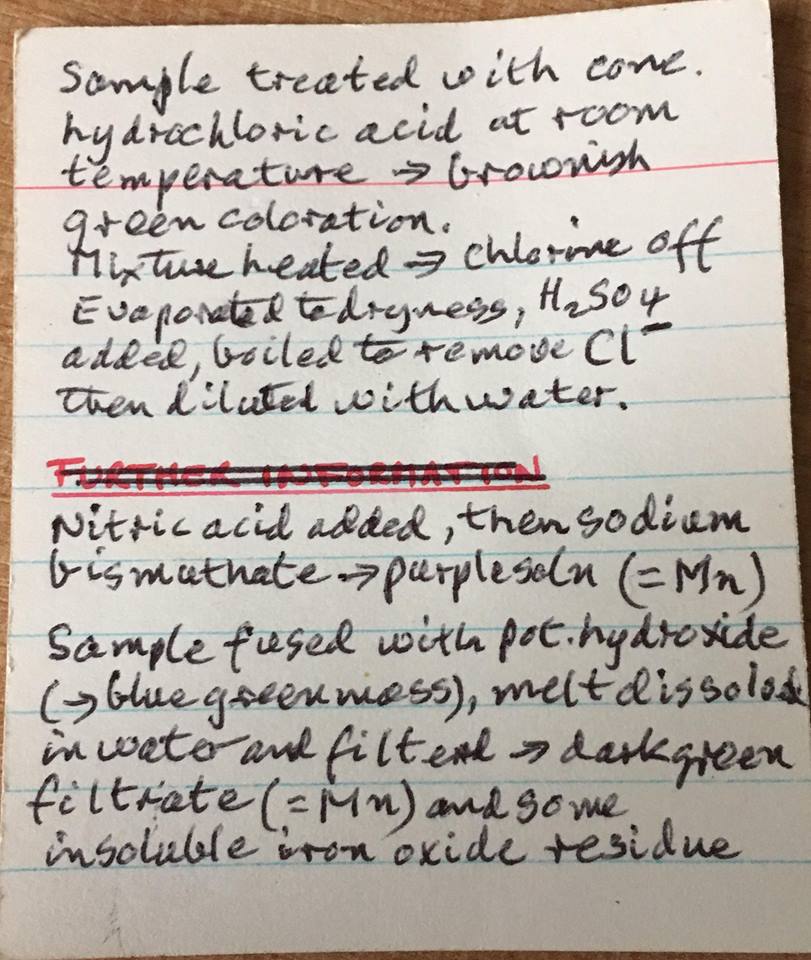 Sample treated with conc.
hydrochloric acid at room
temperature → brownish
green coloration.
Mixture heated → chlorine off
Evaporated to dryness, H₂SO₄
added, boiled to remove Cl⁻
then diluted with water.
FURTHER INFORMATION
Nitric acid added, then sodium
bismuthate → purple soln (= Mn)
Sample fused with pot. hydroxide
(→ blue green mass), melt dissolved
in water and filtered → dark green
filtrate (= Mn) and some
insoluble iron oxide residue